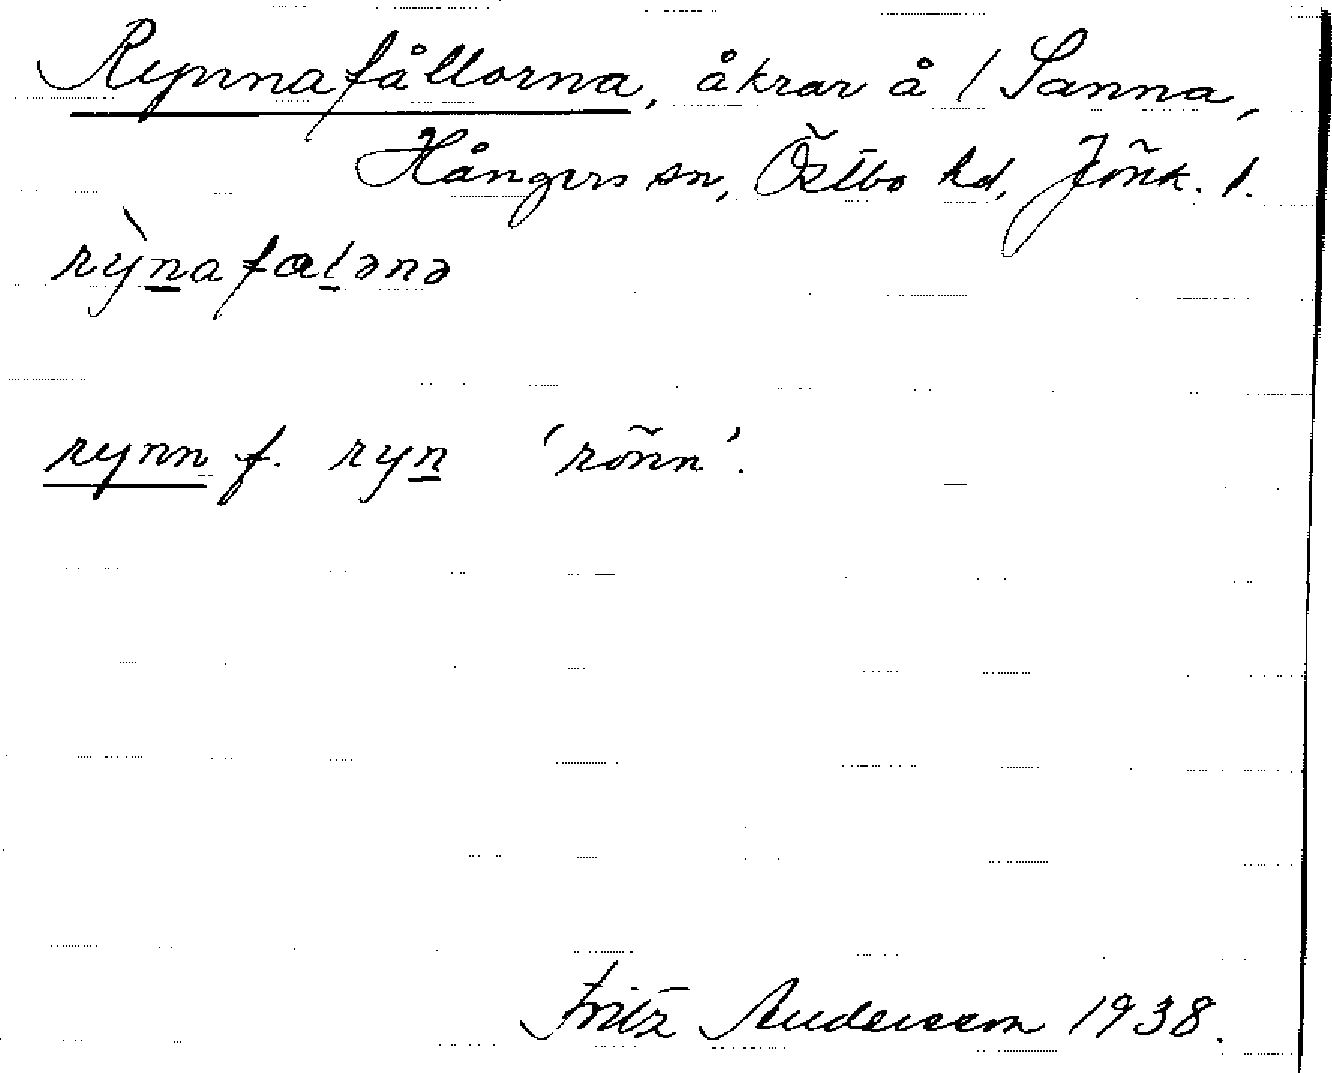 Rynnafållorna, åkrar å / Sanna,
Hångers sn, Östbo hd, Jönk. l.
rỳnafalənə
rynn f. ryn 'rönn'.
Fritz Andersson 1938.